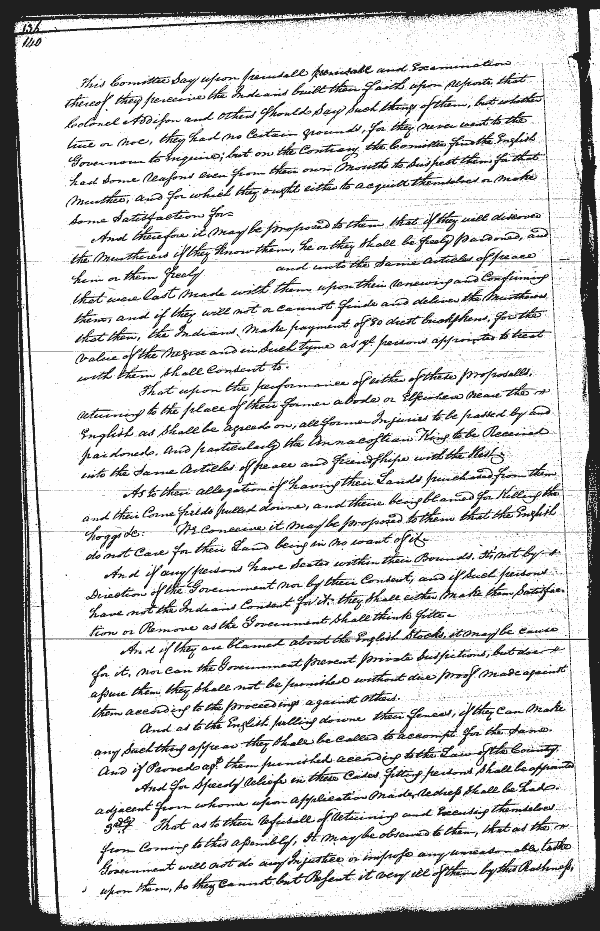 136
140
This Comittee Say upon perusall perusall and Examination
thereof they perceive the Indians built their Faith upon reports that
Colonel Addison and others should Say such things of them, but whether
true or noe, they had no Certain grounds, for they never went to the
Governour to Enquire; but on the Contrary the Comittee find the English
had some reasons even from their own Mouths to Suspect them for that
Murther, and for which they ought either to acquitt themselves or make
some Satisfaction for
And therefore it may be proposed to them that if they will discover
the Murtherers if they know them, he or they shall be freely Pardoned, and
him or them freely and unto the Same Articles of peace
that were last made with them upon their renewing and Confirming
them, and if they will not or cannot finde and deliver the Murtherers
that then, the Indians, make payment of 80 drest buckskins, for the
value of the Negroe and in Such tyme as ye persons appointed to treat
with them shall Consent to.
That upon the performance of either of these Proposalls,
returning to the place of their former abode or Elsewhere near the
English as shall be agreed on, all former Injuries to be passed by and
pardoned, and particularly the Annacostian King to be Received
into the Same Articles of peace and friendships with the Rest.
As to their allegation of having their Lands purchased from them
and their Corne fields pulled downe, and their being blamed for Killing the
hoggs &c. We conceive it may be proposed to them that the English
do not Care for their Land being in no want of it.
And if any persons have Seated within their Bounds, it's not by
Direction of the Government nor by their Consent, and if Such persons
have not the Indians Consent for it they shall either make them Satisfac-
tion or Remove as the Government shall think fitt.
And if they are blamed about the English Stocks, it may be cause
for it, nor can the Government prevent private Suspitions, but doe
assure them they shall not be punished without due proof made against
them according to the proceedings against others.
And as to the English pulling downe their fences, if they can make
any such thing appear they shall be called to accompt for the Same
And if Proved agt. them punished according to the Law of the County
And for Speedy releife in these Cases fitting persons shall be appointed
adjacent from whome upon application Made, Redress shall be had.
3dly That as to their refusall of returning and Excusing themselves
from Coming to this Assembly, It may be observed to them, that as the
Government will not do any Injustice or impose any unreasonable taske
upon them, so they cannot but Resent it very ill of them by this Rashness,